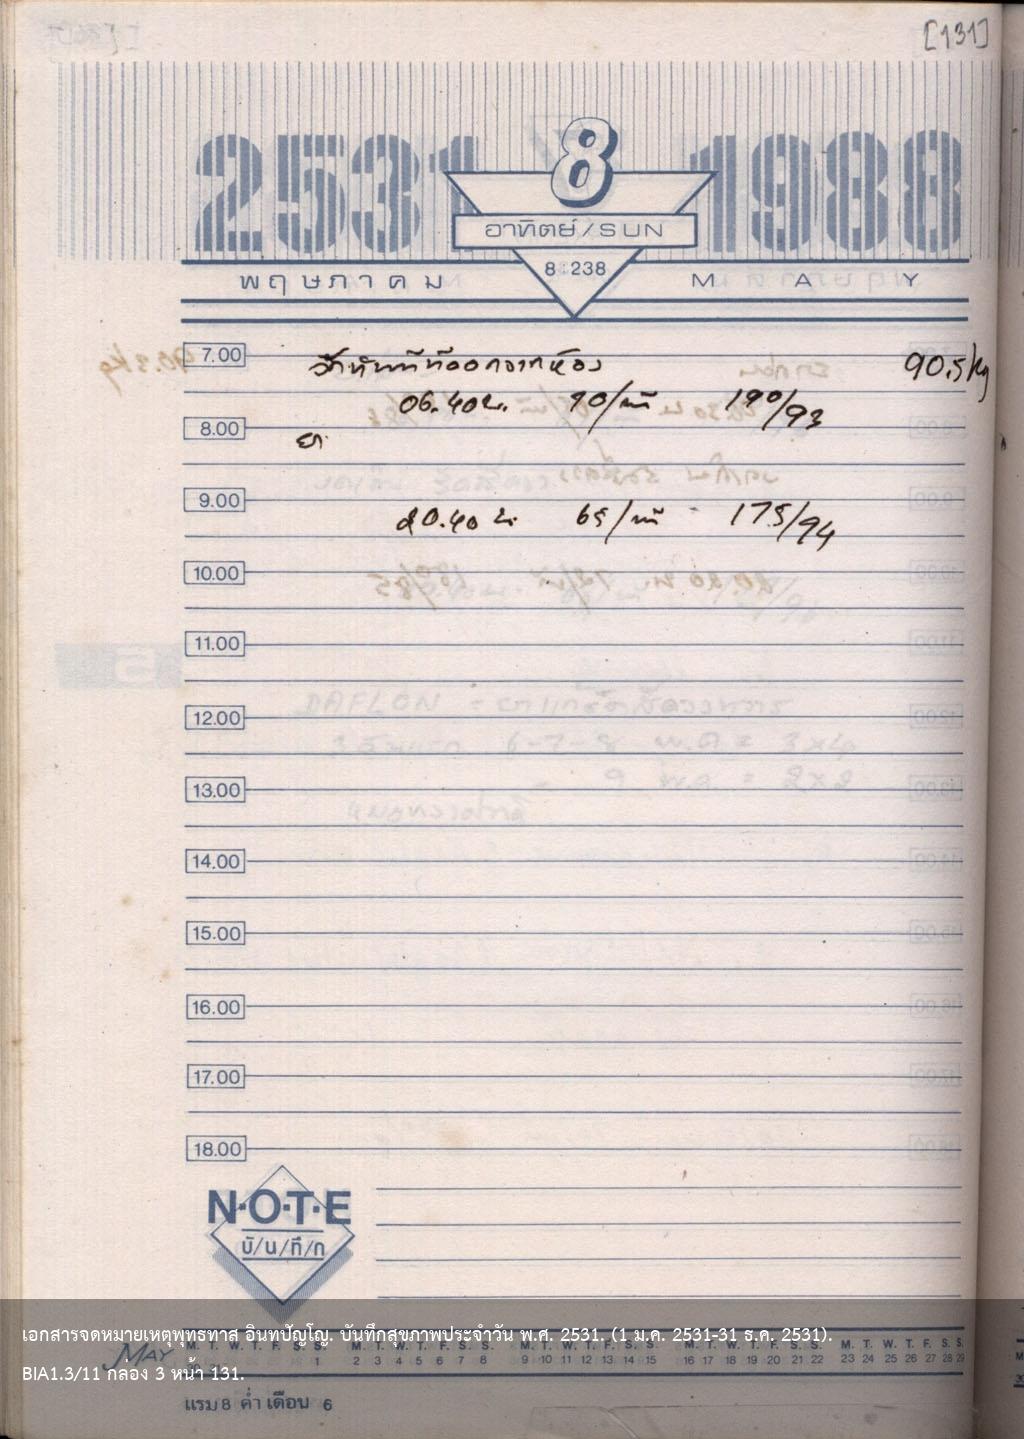 [131]
2531 1988
8
อาทิตย์/SUN
8:238
พฤษภาคม MAY
7.00 ทันทีที่ออกจากห้อง 90.5 kg
06.40 น. 70/นาที 190/93
8.00 ยา
9.00
20.40 น. 65/นาที 175/94
10.00
11.00
12.00
13.00
14.00
15.00
16.00
17.00
18.00
N·O·T·E
บั/น/ทึ/ก
เอกสารจดหมายเหตุพุทธทาส อินทปัญโญ. บันทึกสุขภาพประจำวัน พ.ศ. 2531. (1 ม.ค. 2531-31 ธ.ค. 2531).
MAY
M. T. W. T. F. S. S. M. T. W. T. F. S. S. M. T. W. T. F. S. S. M. T. W. T. F. S. S. M. T. W. T. F. S. S.
1 2 3 4 5 6 7 8 9 10 11 12 13 14 15 16 17 18 19 20 21 22 23 24 25 26 27 28 29
BIA1.3/11 กล่อง 3 หน้า 131.
แรม 8 ค่ำ เดือน 6